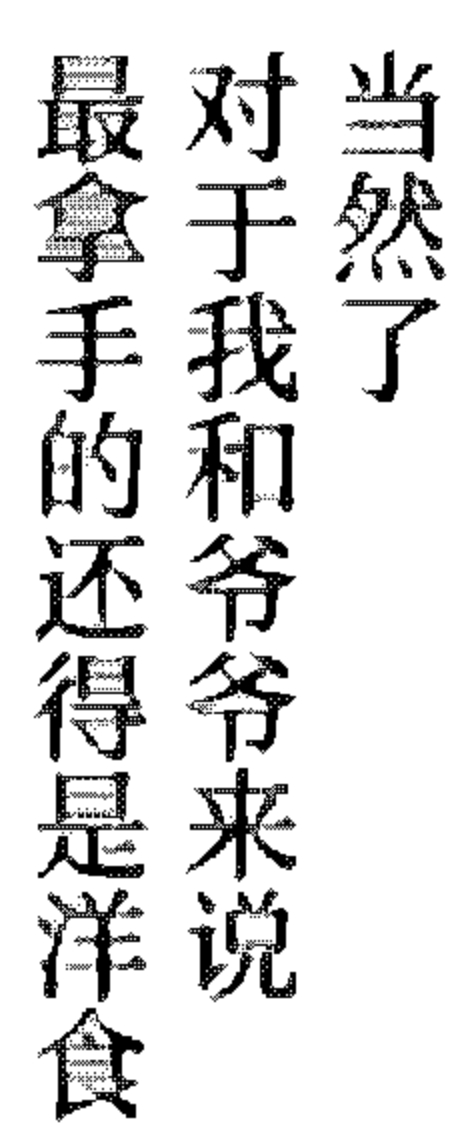 当然了
对于我和爷爷来说
最拿手的还得是洋食